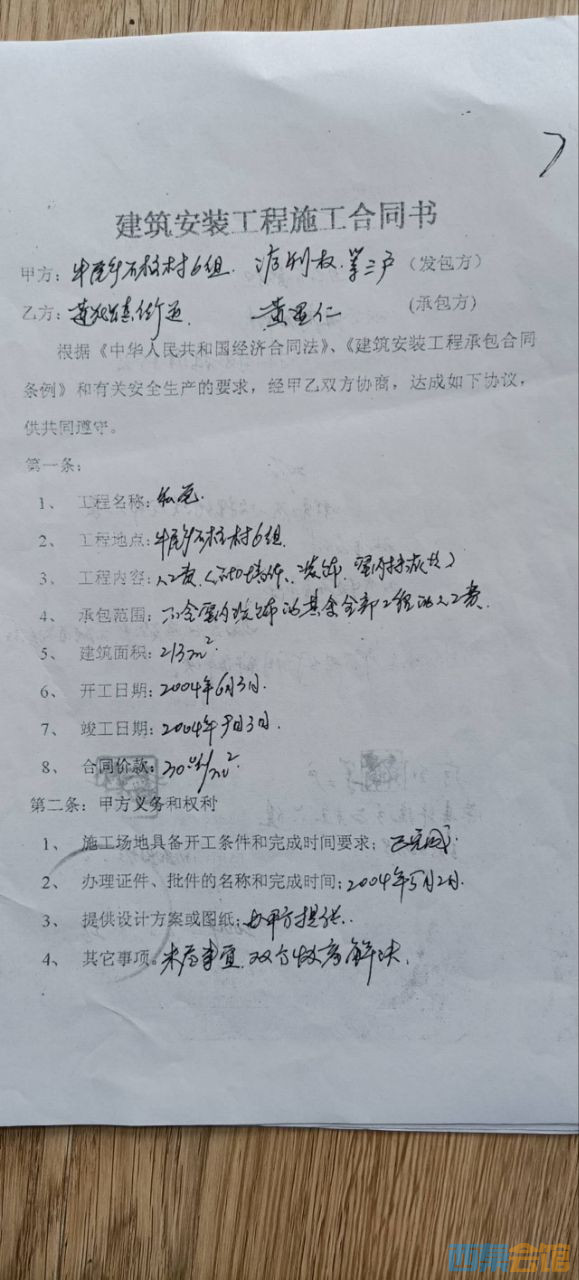 建筑安装工程施工合同书
甲方：牛尾乡石柱村6组. 权. 等三户（发包方）
乙方： 黄 仁 (承包方)
根据《中华人民共和国经济合同法》、《建筑安装工程承包合同
条例》和有关安全生产的要求，经甲乙双方协商，达成如下协议，
供共同遵守。
第一条：
1、 工程名称：私宅.
2、 工程地点：牛尾乡石柱村6组.
3、 工程内容：人工费
4、 承包范围：不含室内装饰的其余全部工程的人工费.
5、 建筑面积：213m².
6、 开工日期：2004年6月3日.
7、 竣工日期：2004年9月3日.
8、 合同价款：/m²
第二条：甲方义务和权利
1、 施工场地具备开工条件和完成时间要求：已完成.
2、 办理证件、批件的名称和完成时间：2004年5月2日.
3、 提供设计方案或图纸：由甲方提供.
4、 其它事项。未尽事宜.双方协商解决.
西祠会馆